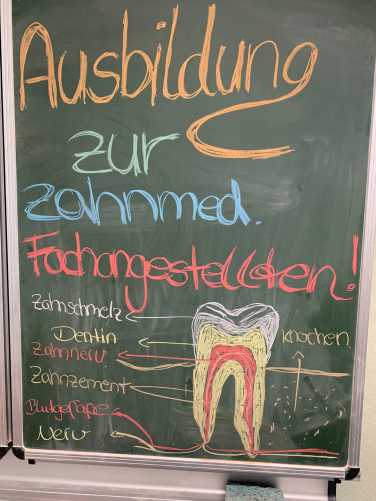 Ausbildung
zur
zahnmed.
Fachangestellten!
Zahnschmelz
Dentin
Knochen
Zahnnerv
Zahnzement
Blutgefäße
Nerv